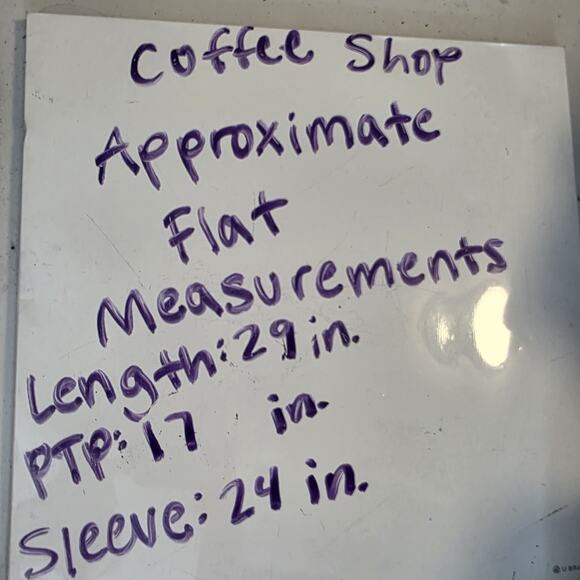 Coffee Shop
Approximate
Flat
Measurements
Length: 29 in.
PTP: 17 in.
Sleeve: 24 in.